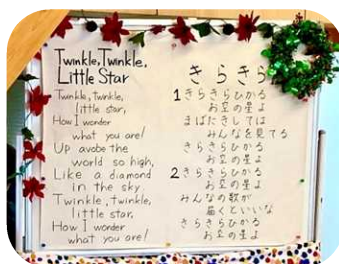 Twinkle,Twinkle,
Little Star
Twinkle, twinkle,
little star,
How I wonder
what you are!
Up avobe the
world so high,
Like a diamond
in the sky
Twinkle, twinkle,
little star,
How I wonder
what you are!
きらきら
1 きらきらひかる
お空の星よ
まばたきしては
みんなを見てる
きらきらひかる
お空の星よ
2 きらきらひかる
お空の星よ
みんなの歌が
届くといいな
きらきらひかる
お空の星よ